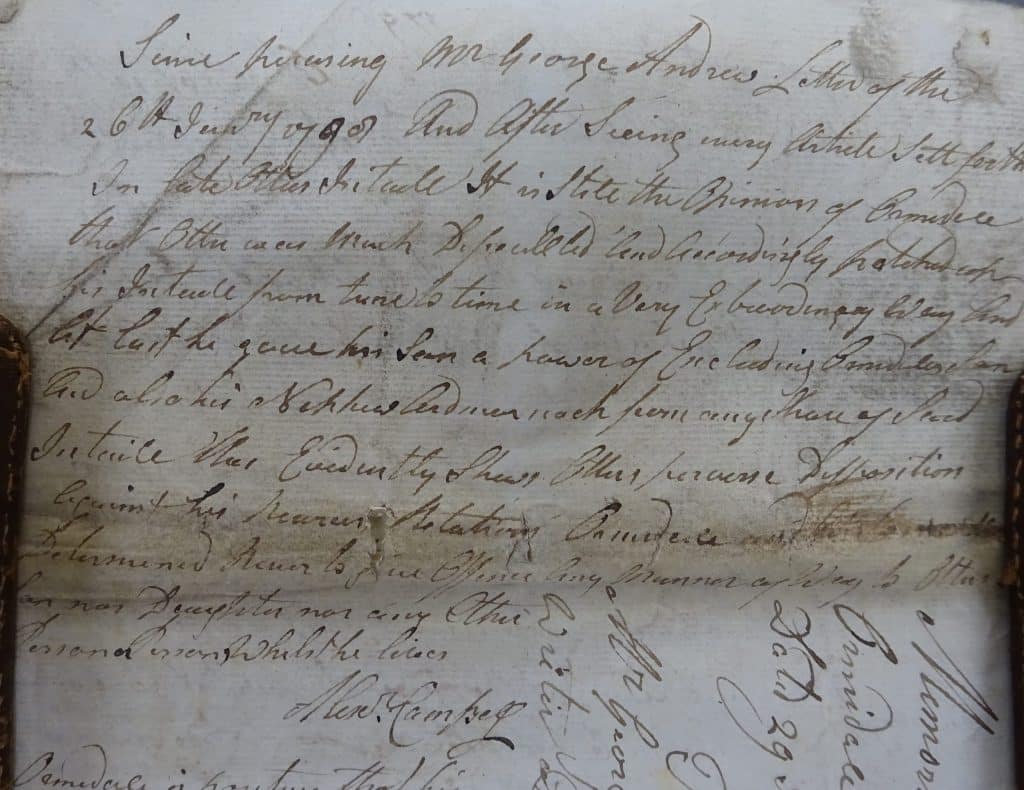 Since perusing Mr George Andrew Letter of the
26th Janry 1798 And After Seeing every Article Sett forth
In late Otters Intaile It is Still the Opinion of Ormidale
that Otter was Much And Accordingly patched up
his Intaile from time to time in a Very Extraordinary Way And
At last he gave his Son a power of Excluding Ormidales Son
And also his Nephew from any Share of Said
Intaile This Evidently Shows Otters perverse Disposition
Against his Nearest Relations Ormidale
Determined Never to give Offence Any Manner of Way to Otters
Son nor Daughter nor any Other
Person Person Whilst he lives
Alexr. Campbell
Ormidale is
Memor
Ormidale
Dated 29
Mr Geor
Writer